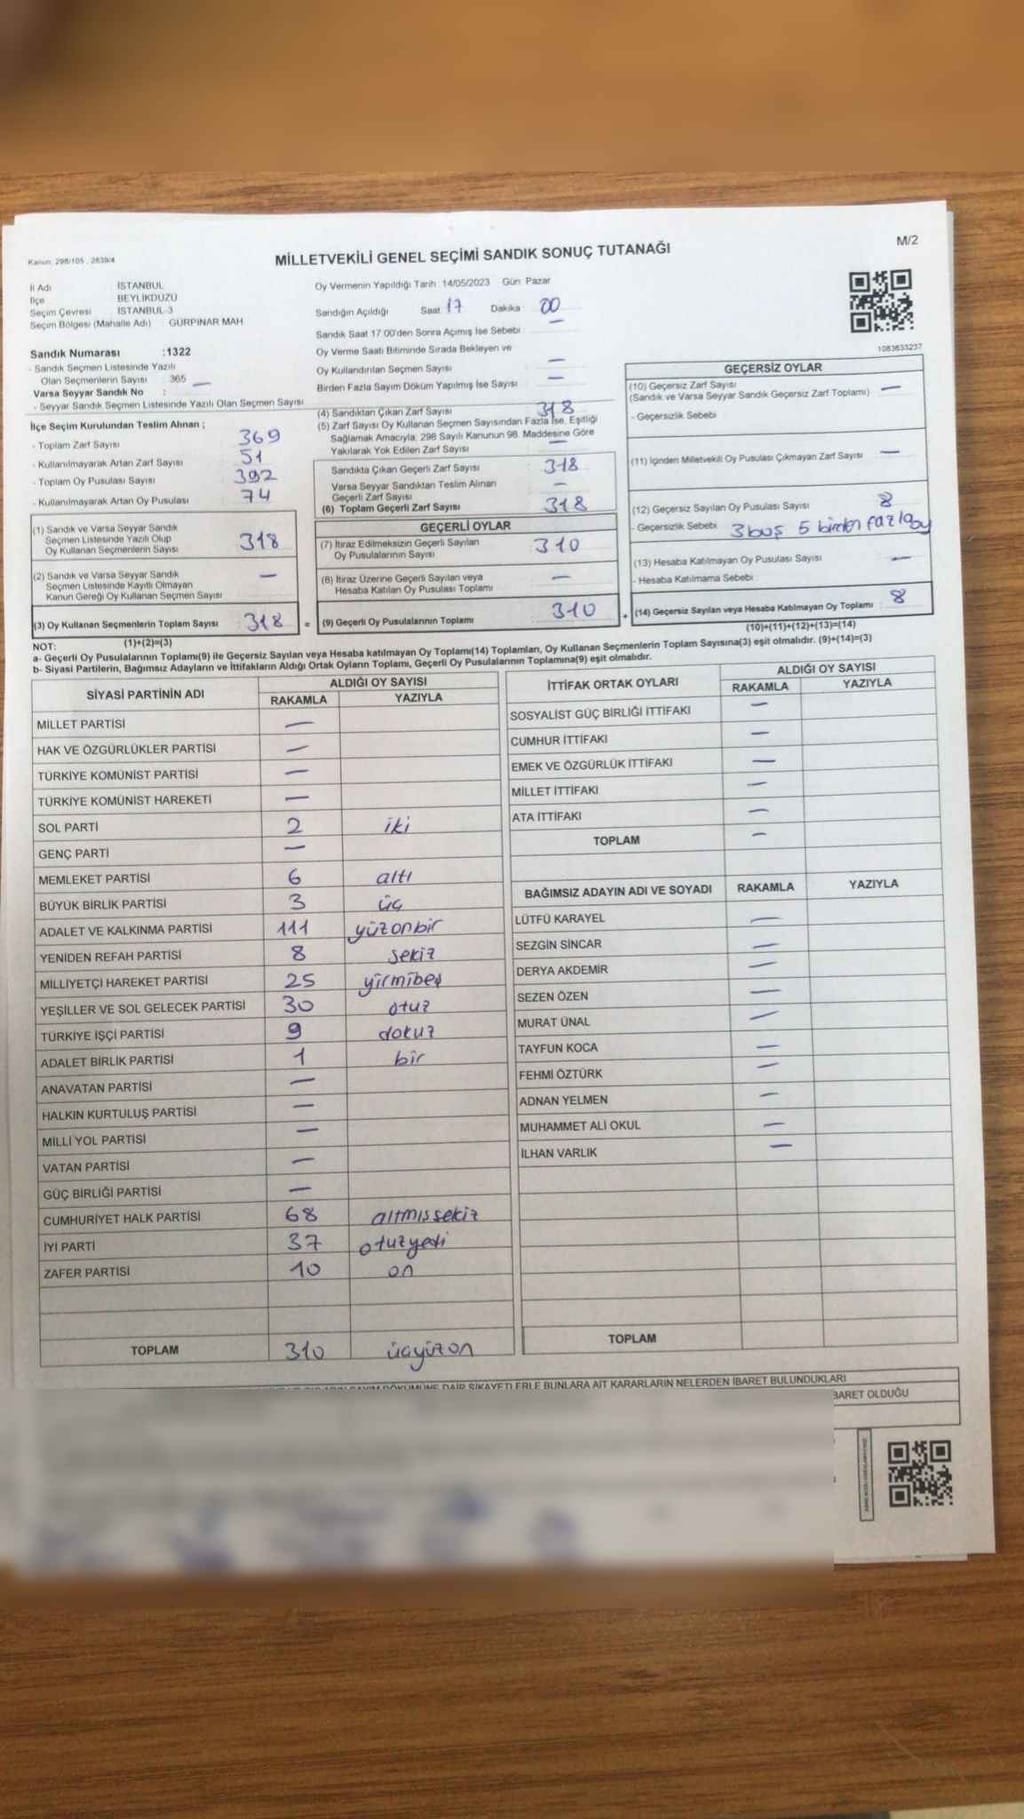 Kanun: 298/105, 2839/4
MİLLETVEKİLİ GENEL SEÇİMİ SANDIK SONUÇ TUTANAĞI
M/2
İl Adı İSTANBUL
İlçe BEYLİKDÜZÜ
Seçim Çevresi İSTANBUL-3
Seçim Bölgesi (Mahalle Adı) GÜRPINAR MAH
Sandık Numarası :1322
- Sandık Seçmen Listesinde Yazılı
Olan Seçmenlerin Sayısı 365 —
Varsa Seyyar Sandık No :
- Seyyar Sandık Seçmen Listesinde Yazılı Olan Seçmen Sayısı
Oy Vermenin Yapıldığı Tarih: 14/05/2023 Gün: Pazar
Sandığın Açıldığı Saat 17 Dakika 00
Sandık Saat 17:00'den Sonra Açımış İse Sebebi —
Oy Verme Saati Bitiminde Sırada Bekleyen ve
Oy Kullandırılan Seçmen Sayısı —
Birden Fazla Sayım Döküm Yapılmış İse Sayısı —
1083633237
İlçe Seçim Kurulundan Teslim Alınan ;
- Toplam Zarf Sayısı 369
- Kullanılmayarak Artan Zarf Sayısı 51
- Toplam Oy Pusulası Sayısı 392
- Kullanılmayarak Artan Oy Pusulası 74
(1) Sandık ve Varsa Seyyar Sandık
Seçmen Listesinde Yazılı Olup
Oy Kullanan Seçmenlerin Sayısı 318
(2) Sandık ve Varsa Seyyar Sandık
Seçmen Listesinde Kayıtlı Olmayan
Kanun Gereği Oy Kullanan Seçmen Sayısı —
(3) Oy Kullanan Seçmenlerin Toplam Sayısı 318 =
(1)+(2)=(3)
(4) Sandıktan Çıkan Zarf Sayısı 318
(5) Zarf Sayısı Oy Kullanan Seçmen Sayısından Fazla İse, Eşitliği
Sağlamak Amacıyla, 298 Sayılı Kanunun 98. Maddesine Göre
Yakılarak Yok Edilen Zarf Sayısı —
Sandıkta Çıkan Geçerli Zarf Sayısı 318
Varsa Seyyar Sandıktan Teslim Alınan
Geçerli Zarf Sayısı —
(6) Toplam Geçerli Zarf Sayısı 318
GEÇERLİ OYLAR
(7) İtiraz Edilmeksizin Geçerli Sayılan
Oy Pusulalarının Sayısı 310
(8) İtiraz Üzerine Geçerli Sayılan veya
Hesaba Katılan Oy Pusulası Toplamı —
(9) Geçerli Oy Pusulalarının Toplamı 310 +
GEÇERSİZ OYLAR
(10) Geçersiz Zarf Sayısı
(Sandık ve Varsa Seyyar Sandık Geçersiz Zarf Toplamı) —
- Geçersizlik Sebebi
(11) İçinden Milletvekili Oy Pusulası Çıkmayan Zarf Sayısı —
(12) Geçersiz Sayılan Oy Pusulası Sayısı 8
- Geçersizlik Sebebi 3 boş 5 birden fazla oy
(13) Hesaba Katılmayan Oy Pusulası Sayısı —
- Hesaba Katılmama Sebebi
(14) Geçersiz Sayılan veya Hesaba Katılmayan Oy Toplamı 8
(10)+(11)+(12)+(13)=(14)
NOT:
a- Geçerli Oy Pusulalarının Toplamı(9) ile Geçersiz Sayılan veya Hesaba katılmayan Oy Toplamı(14) Toplamları, Oy Kullanan Seçmenlerin Toplam Sayısına(3) eşit olmalıdır. (9)+(14)=(3)
b- Siyasi Partilerin, Bağımsız Adayların ve İttifakların Aldığı Ortak Oyların Toplamı, Geçerli Oy Pusulalarının Toplamına(9) eşit olmalıdır.
SİYASİ PARTİNİN ADI ALDIĞI OY SAYISI
RAKAMLA YAZIYLA
MİLLET PARTİSİ —
HAK VE ÖZGÜRLÜKLER PARTİSİ —
TÜRKİYE KOMÜNİST PARTİSİ —
TÜRKİYE KOMÜNİST HAREKETİ —
SOL PARTİ 2 iki
GENÇ PARTİ —
MEMLEKET PARTİSİ 6 altı
BÜYÜK BİRLİK PARTİSİ 3 üç
ADALET VE KALKINMA PARTİSİ 111 yüzonbir
YENİDEN REFAH PARTİSİ 8 sekiz
MİLLİYETÇİ HAREKET PARTİSİ 25 yirmibeş
YEŞİLLER VE SOL GELECEK PARTİSİ 30 otuz
TÜRKİYE İŞÇİ PARTİSİ 9 dokuz
ADALET BİRLİK PARTİSİ 1 bir
ANAVATAN PARTİSİ —
HALKIN KURTULUŞ PARTİSİ —
MİLLİ YOL PARTİSİ —
VATAN PARTİSİ —
GÜÇ BİRLİĞİ PARTİSİ —
CUMHURİYET HALK PARTİSİ 68 altmışsekiz
İYİ PARTİ 37 otuzyedi
ZAFER PARTİSİ 10 on
TOPLAM 310 üçyüzon
İTTİFAK ORTAK OYLARI ALDIĞI OY SAYISI
RAKAMLA YAZIYLA
SOSYALİST GÜÇ BİRLİĞİ İTTİFAKI —
CUMHUR İTTİFAKI —
EMEK VE ÖZGÜRLÜK İTTİFAKI —
MİLLET İTTİFAKI —
ATA İTTİFAKI —
TOPLAM —
BAĞIMSIZ ADAYIN ADI VE SOYADI RAKAMLA YAZIYLA
LÜTFÜ KARAYEL —
SEZGİN SİNCAR —
DERYA AKDEMİR —
SEZEN ÖZEN —
MURAT ÜNAL —
TAYFUN KOCA —
FEHMİ ÖZTÜRK —
ADNAN YELMEN —
MUHAMMET ALİ OKUL —
İLHAN VARLIK —
TOPLAM
DÖKÜMÜNE DAİR ŞİKAYETLERLE BUNLARA AİT KARARLARIN NELERDEN İBARET BULUNDUKLARI
BARET OLDUĞU